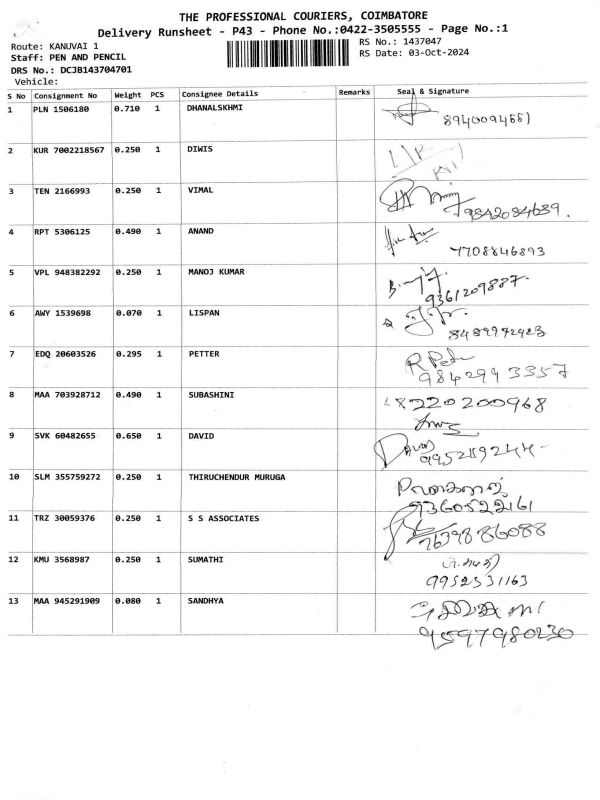 THE PROFESSIONAL COURIERS, COIMBATORE
Delivery Runsheet - P43 - Phone No.:0422-3505555 - Page No.:1
Route: KANUVAI 1
RS No.: 1437047
Staff: PEN AND PENCIL
RS Date: 03-Oct-2024
DRS No.: DCJB143704701
Vehicle:
S No Consignment No Weight PCS Consignee Details Remarks Seal & Signature
1 PLN 1506180 0.710 1 DHANALSKHMI
2 KUR 7002218567 0.250 1 DIWIS
3 TEN 2166993 0.250 1 VIMAL
9842084689.
4 RPT 5306125 0.490 1 ANAND
7708846893
5 VPL 948382292 0.250 1 MANOJ KUMAR
9361209887-
6 AWY 1539698 0.070 1 LISPAN
7 EDQ 20603526 0.295 1 PETTER
9842943357
8 MAA 703928712 0.490 1 SUBASHINI
8220200968
9 SVK 60482655 0.650 1 DAVID
10 SLM 355759272 0.250 1 THIRUCHENDUR MURUGA
9360522161
11 TRZ 30059376 0.250 1 S S ASSOCIATES
7639886088
12 KMU 3568987 0.250 1 SUMATHI
9952531163
13 MAA 945291909 0.080 1 SANDHYA
9597980230